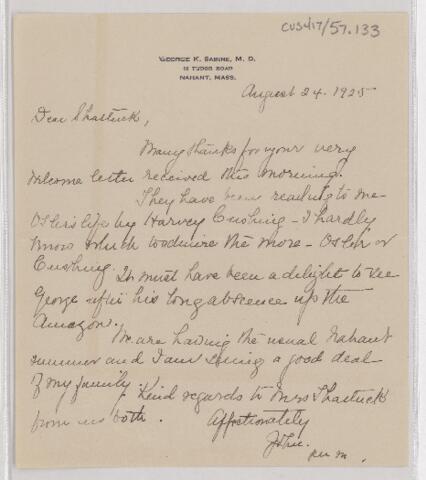 CUS417/57.133
GEORGE K. SABINE, M. D.
TUDOR ROAD
NAHANT, MASS.
August 24. 1925
Dear Shattuck,
Many thanks for your very
welcome letter received this morning.
They have been reading to me
Osler's life by Harvey Cushing - I hardly
know which to admire the more - Osler or
Cushing. It must have been a delight to see
George after his long abscence up the
Amazon.
We are having the usual Nahant
summer and I am seeing a good deal
of my family. Kind regards to Mrs Shattuck
from us both.
Affectionately
John.